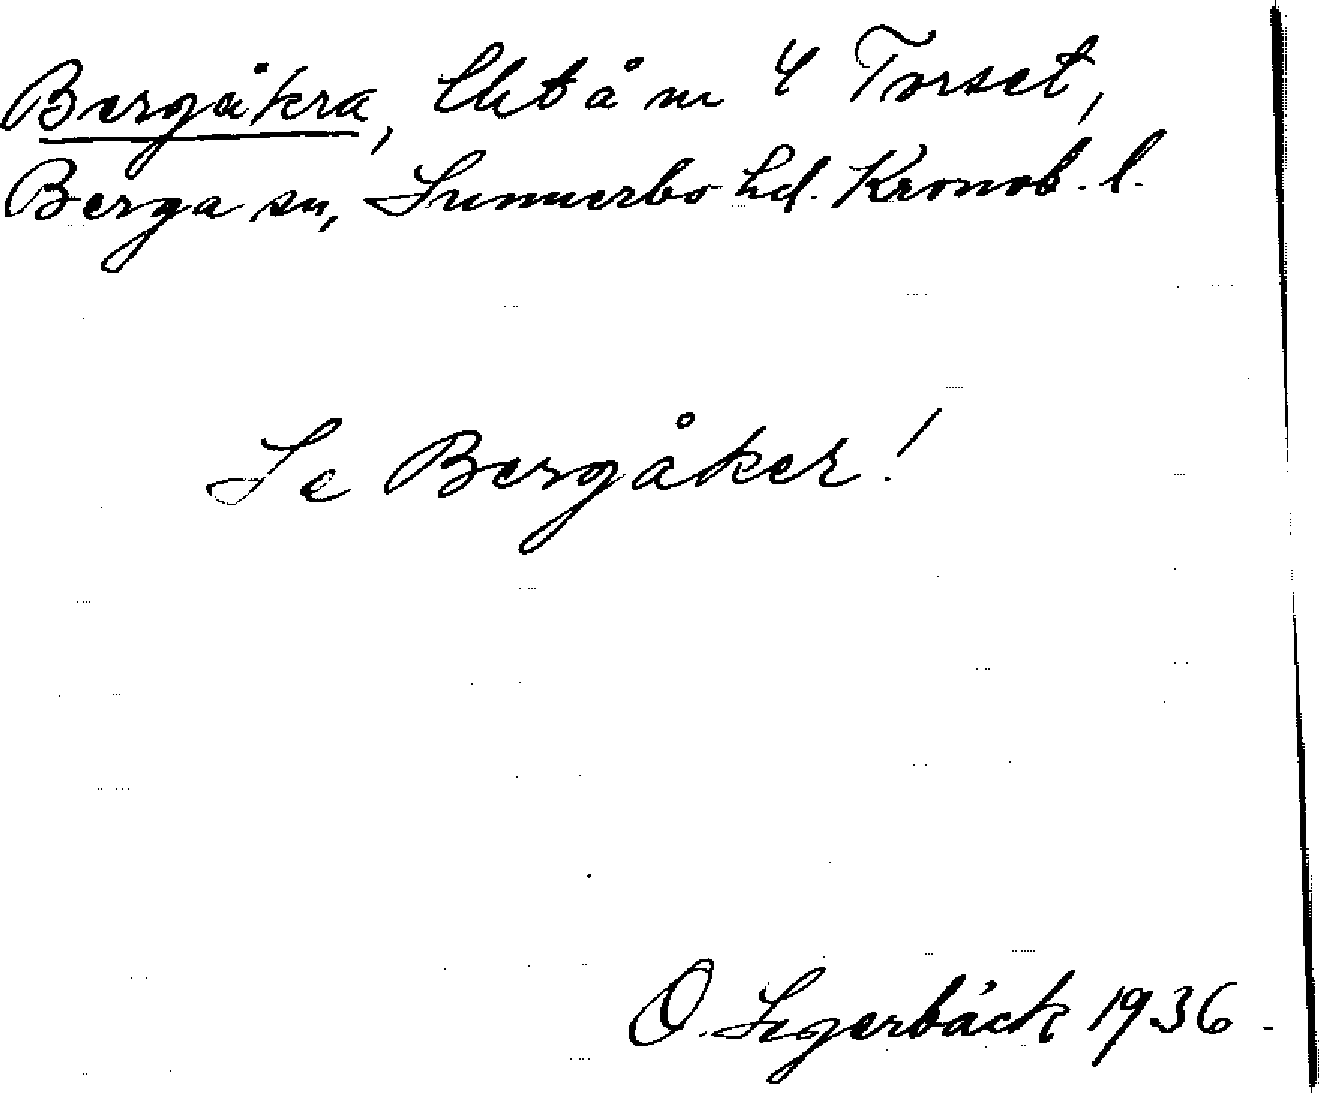 Bergåkra, Utå m 4 Torset,
Berga sn, Sunnerbo hd. Kronob. l.
Se Bergåker!
O. Segerbäck 1936